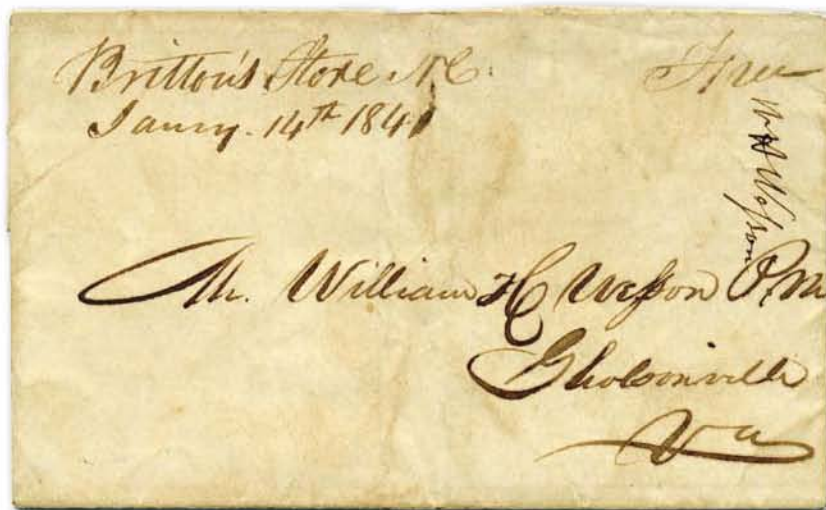 Britton's Store N.C.
Jauny. 14th 1841
Free
W H Wesson
Mr. William H Wesson P.M
Gholsonville
Va